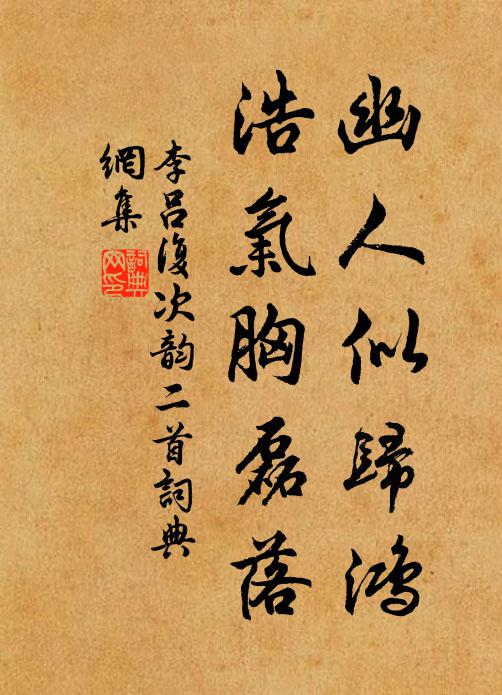 幽人似歸鴻
浩氣胸磊落
李呂復次韵二首詞典
網集
詞典网印